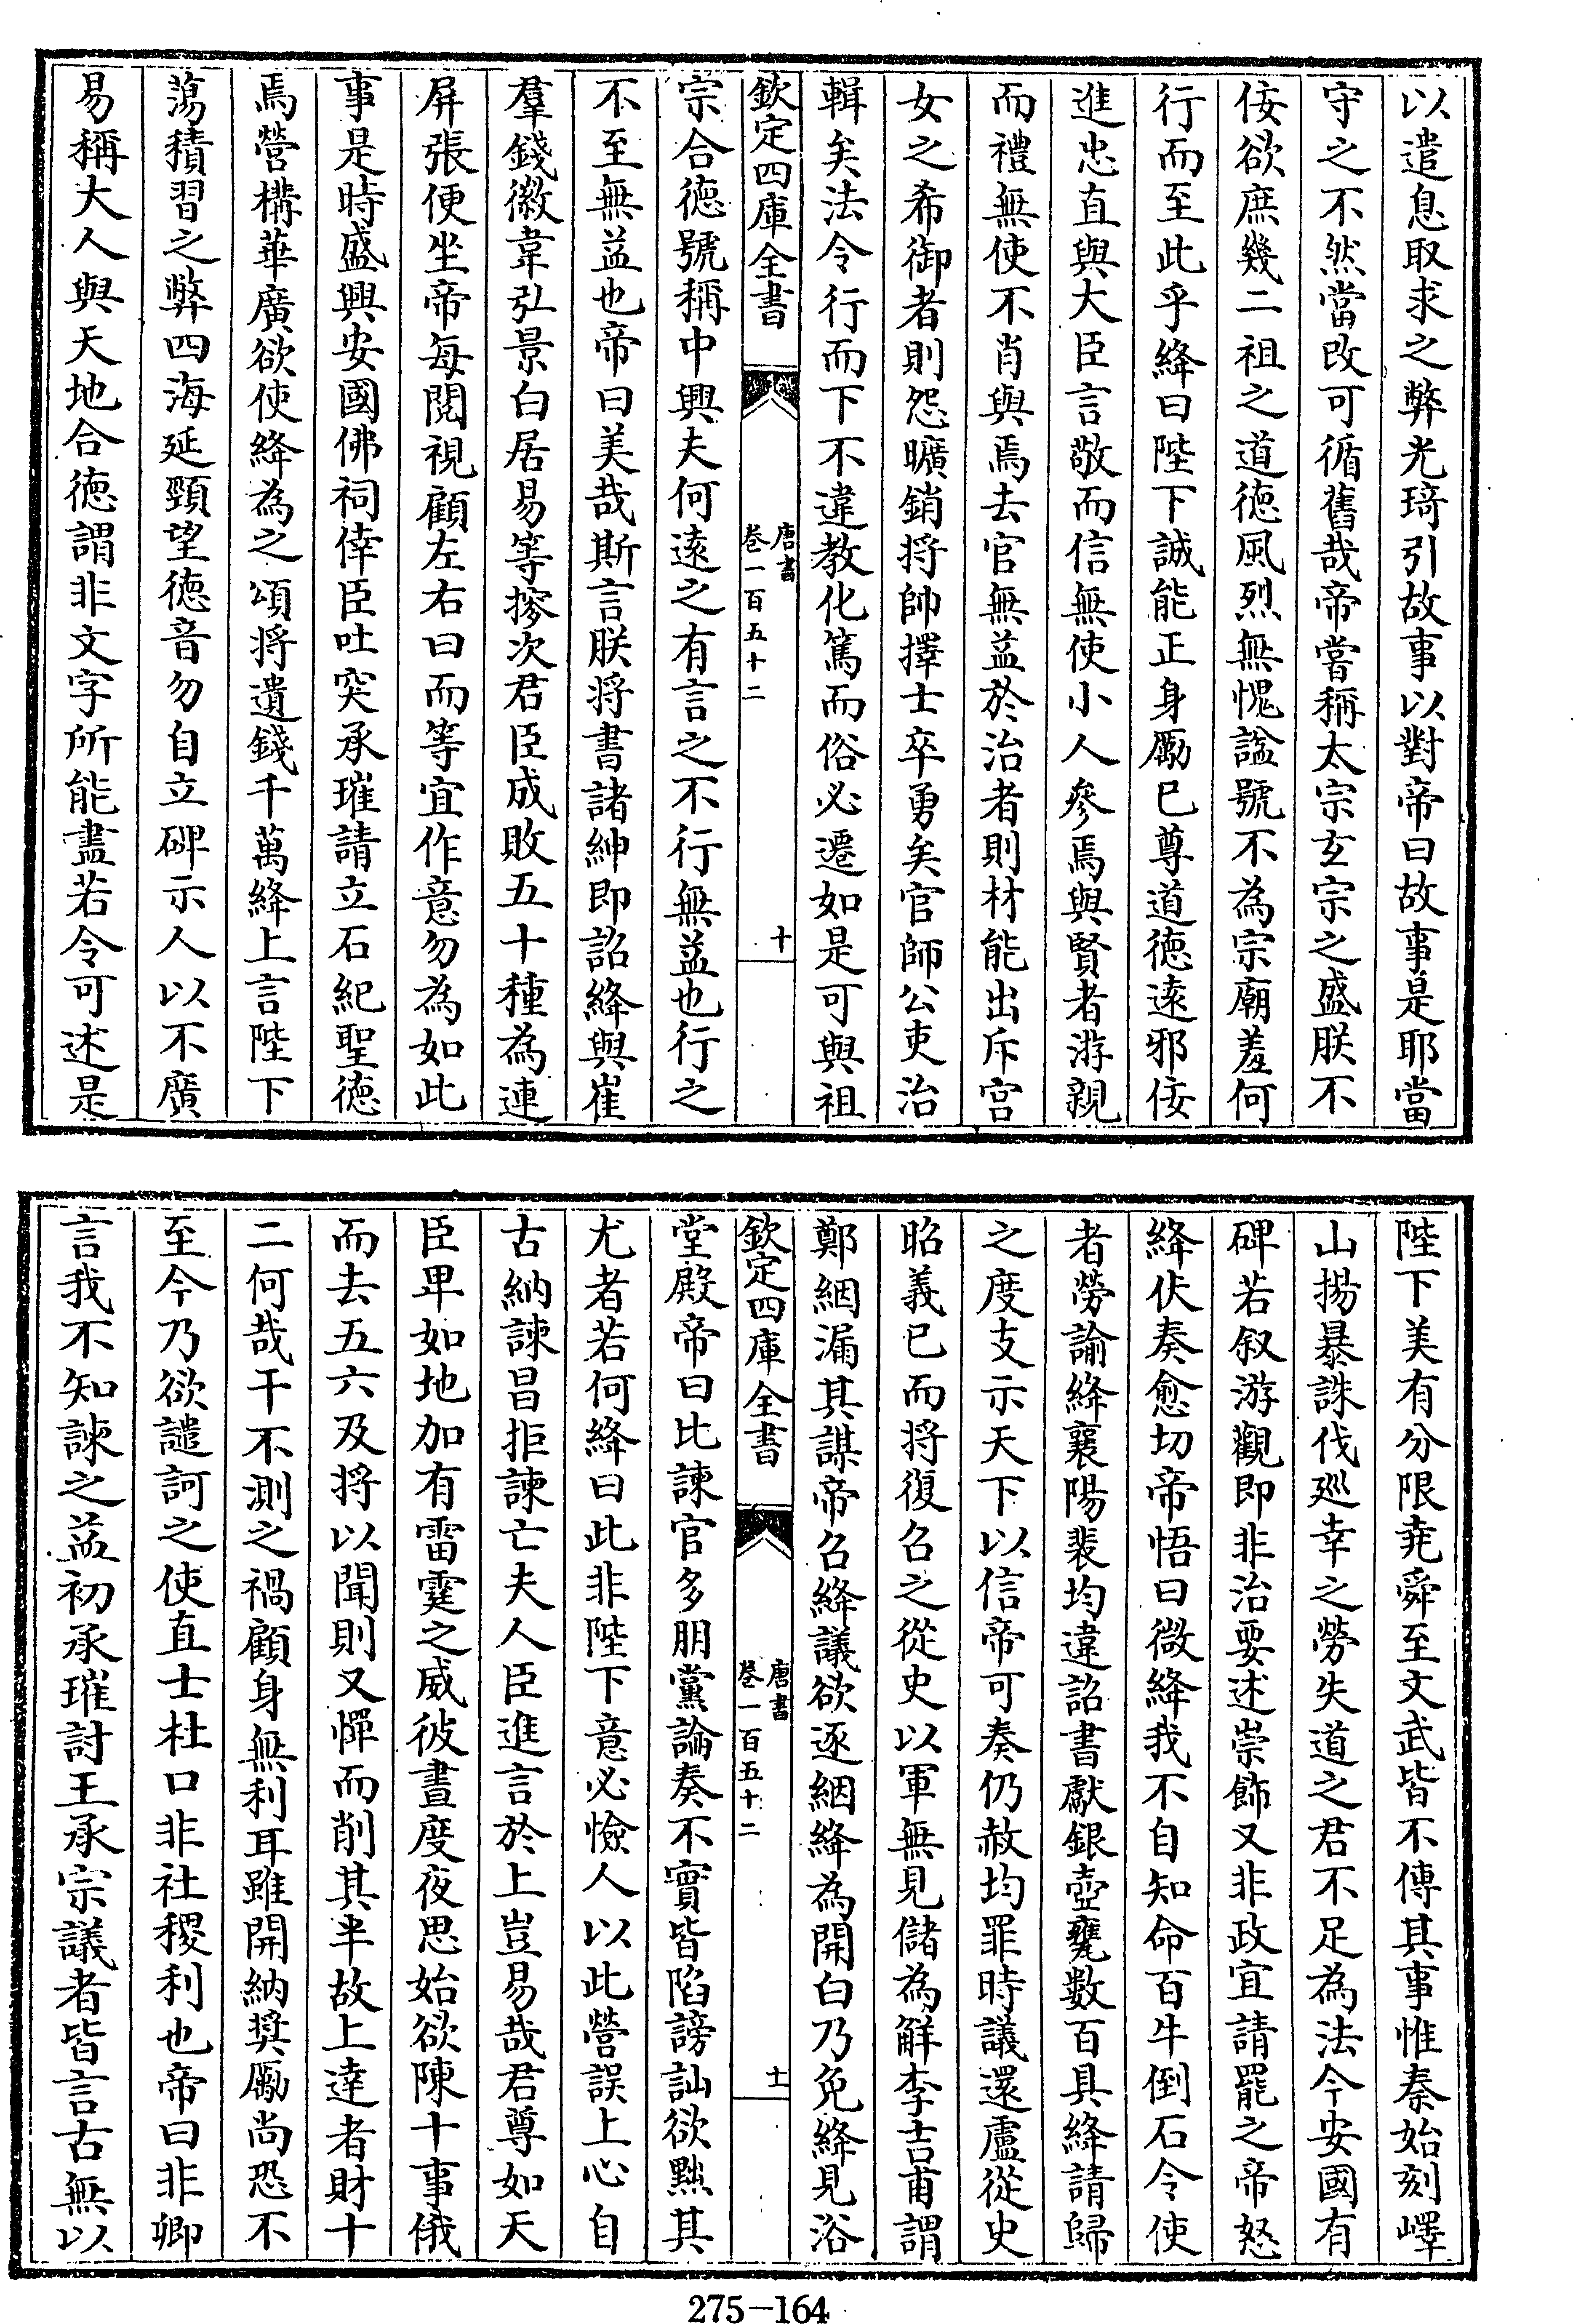 以遣息取求之弊光琦引故事以對帝曰故事是耶當
守之不然當改可循舊哉帝嘗稱太宗玄宗之盛朕不
佞欲庶幾二祖之道德風烈無愧謚號不為宗廟羞何
行而至此乎絳曰陛下誠能正身勵已尊道德逺邪佞
進忠直與大臣言敬而信無使小人參焉與賢者游親
而禮無使不肖與焉去官無益於治者則材能出斥宫
女之希御者則怨曠銷將帥擇士卒勇矣官師公吏治
輯矣法令行而下不違教化篤而俗必遷如是可與祖
欽定四庫全書
唐書
卷一百五十二
十
宗合德號稱中興夫何逺之有言之不行無益也行之
不至無益也帝曰美哉斯言朕將書諸紳即詔絳與崔
羣錢徽韋弘景白居易等搜次君臣成敗五十種為連
屏張便坐帝每閱視顧左右曰而等宜作意勿為如此
事是時盛興安國佛祠倖臣吐突承璀請立石紀聖德
焉營構華廣欲使絳為之頌將遺錢千萬絳上言陛下
蕩積習之弊四海延頸望德音勿自立碑示人以不廣
易稱大人與天地合德謂非文字所能盡若令可述是
陛下美有分限堯舜至文武皆不傳其事惟秦始刻嶧
山揚暴誅伐巡幸之勞失道之君不足為法今安國有
碑若叙游觀即非治要述崇飾又非政宜請罷之帝怒
絳伏奏愈切帝悟曰微絳我不自知命百牛倒石令使
者勞諭絳襄陽裴均違詔書獻銀壺甕數百具絳請歸
之度支示天下以信帝可奏仍赦均罪時議還盧從史
昭義已而將復召之從史以軍無見儲為解李吉甫謂
鄭絪漏其謀帝召絳議欲逐絪絳為開白乃免絳見浴
欽定四庫全書
唐書
卷一百五十二
十一
堂殿帝曰比諫官多朋黨論奏不實皆陷謗訕欲黜其
尤者若何絳曰此非陛下意必憸人以此營誤上心自
古納諫昌拒諫亡夫人臣進言於上豈易哉君尊如天
臣卑如地加有雷霆之威彼晝度夜思始欲陳十事俄
而去五六及將以聞則又憚而削其半故上達者財十
二何哉干不測之禍顧身無利耳雖開納奬勵尚恐不
至今乃欲譴訶之使直士杜口非社稷利也帝曰非卿
言我不知諫之益初承璀討王承宗議者皆言古無以
275-164